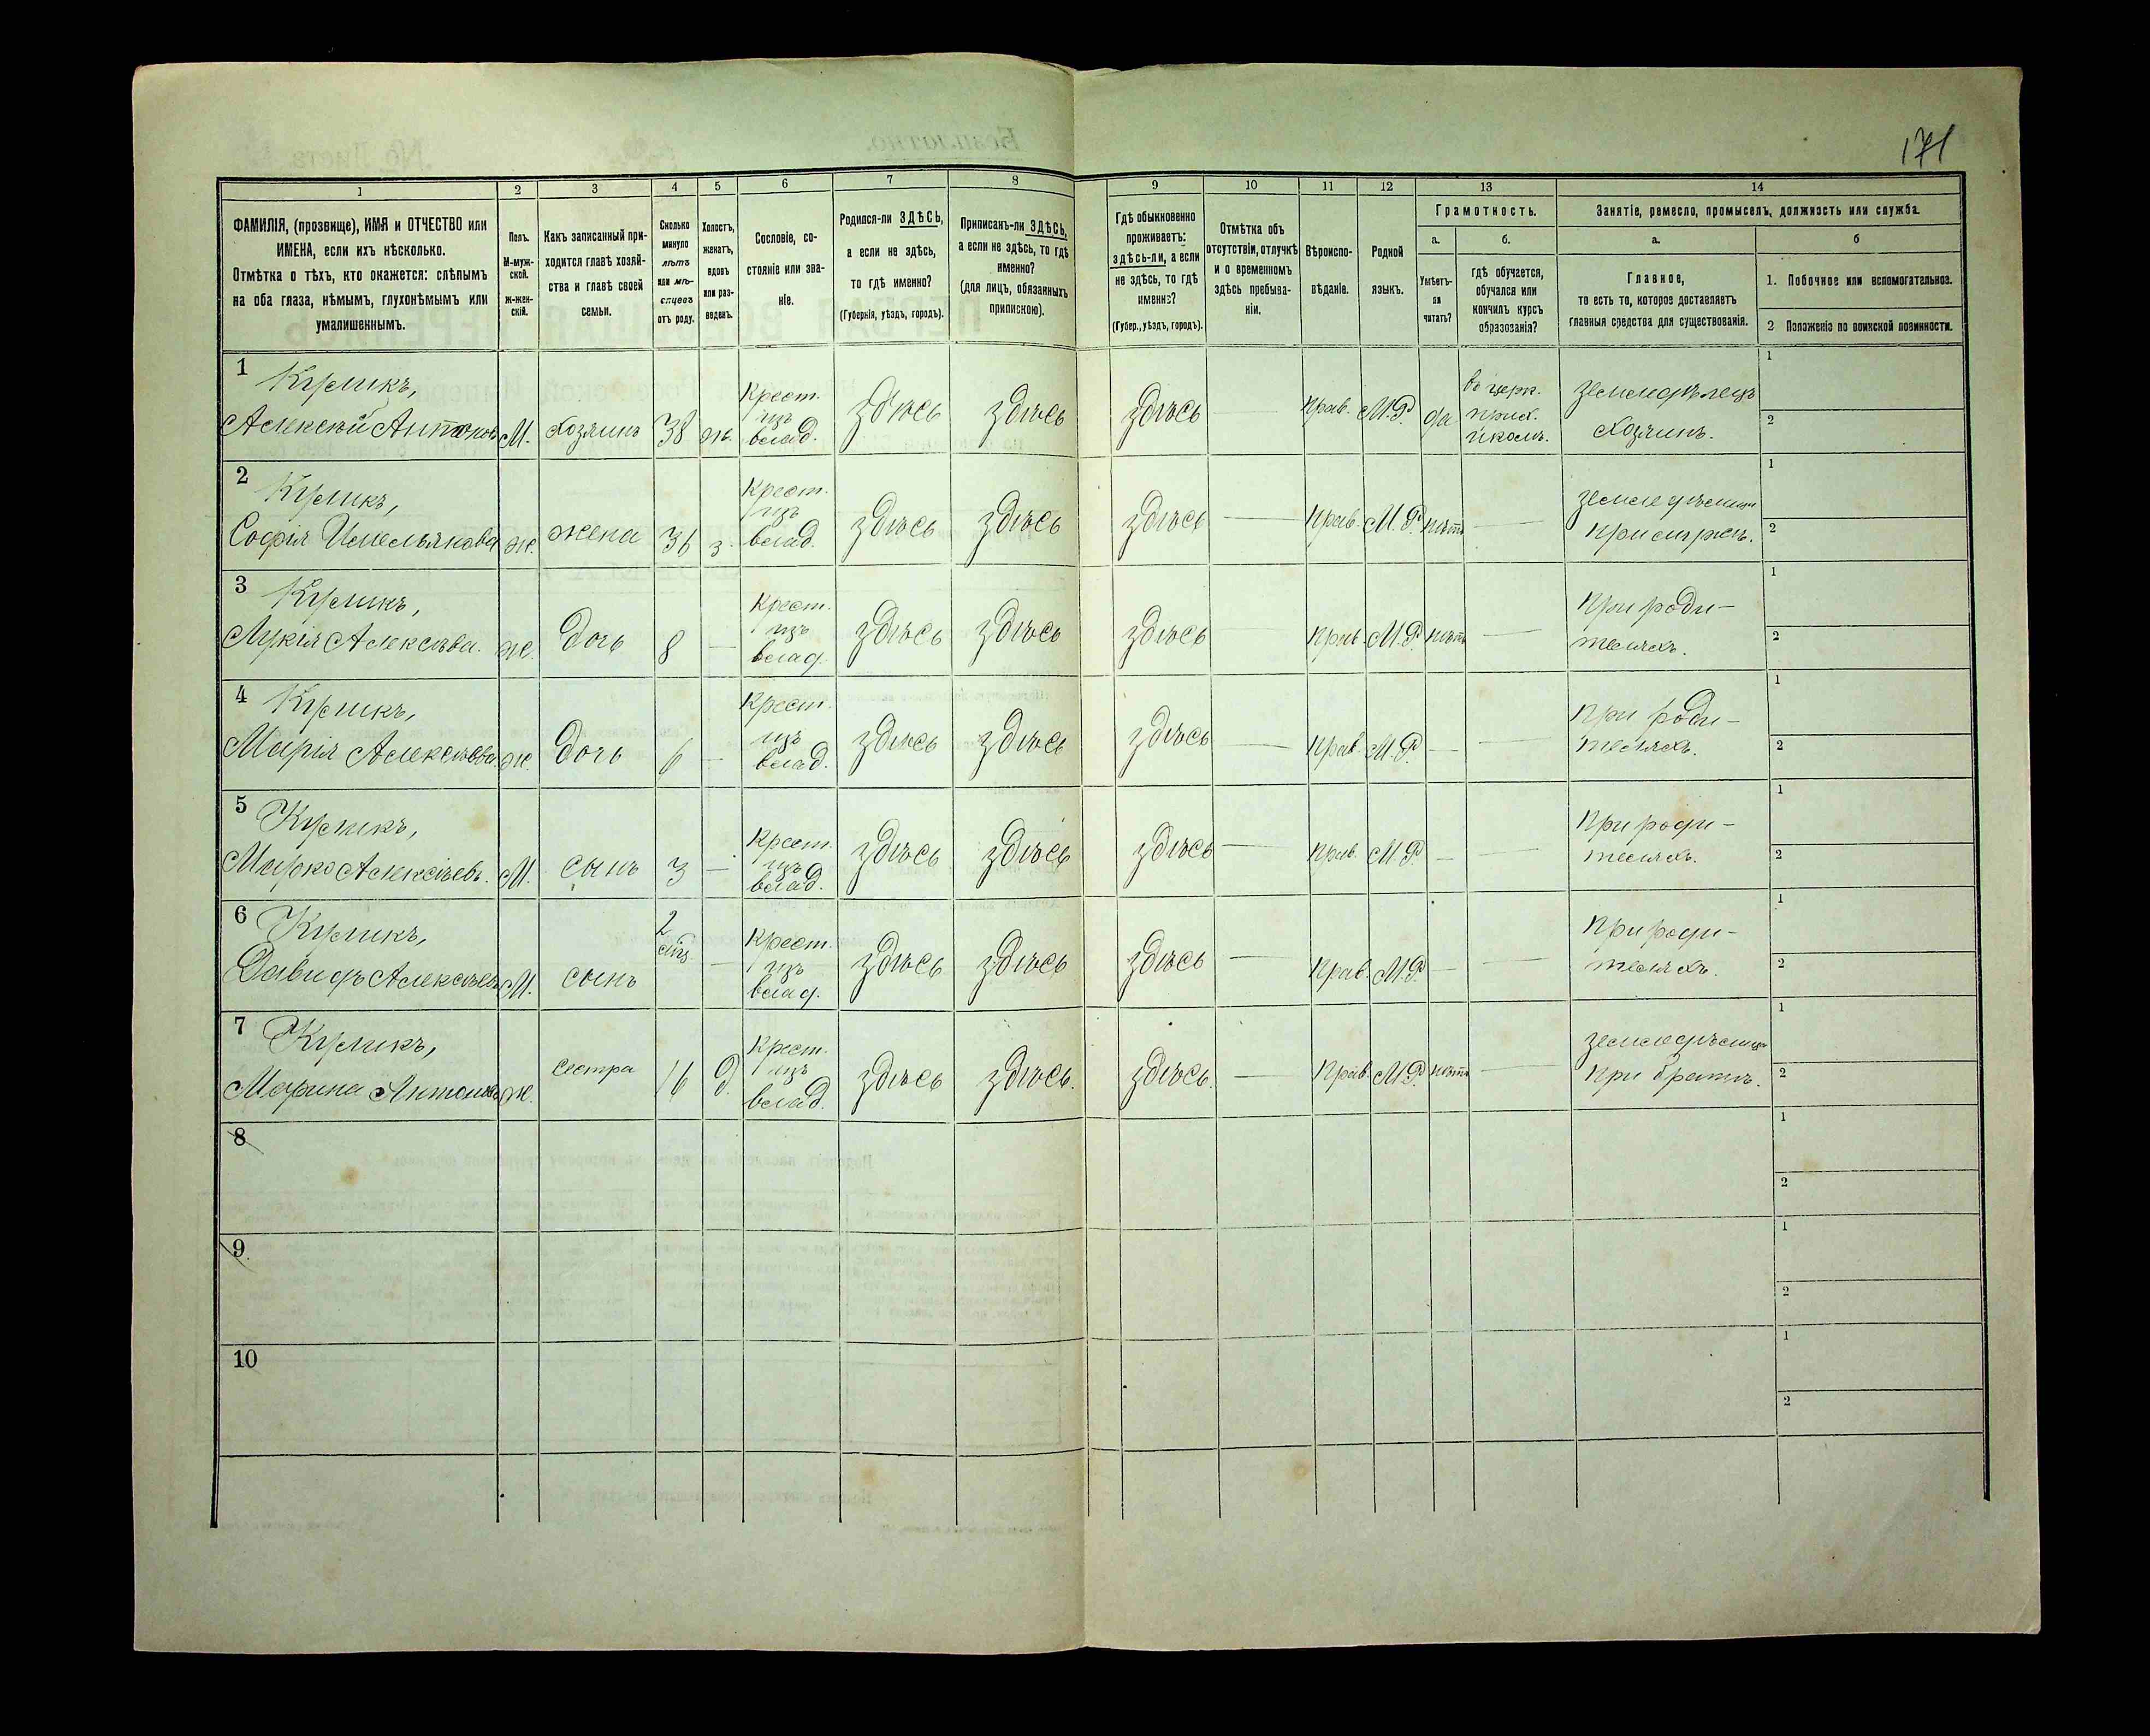 171
1 2 3 4 5 6 7 8 9 10 11 12 13 14
ФАМИЛІЯ, (прозвище), ИМЯ и ОТЧЕСТВО или
ИМЕНА, если ихъ нѣсколько.
Отмѣтка о тѣхъ, кто окажется: слѣпымъ
на оба глаза, нѣмымъ, глухонѣмымъ или
умалишеннымъ.
Полъ.
М-муж-
ской.
Ж-жен-
скій.
Какъ записанный при-
ходится главѣ хозяй-
ства и главѣ своей
семьи.
Сколько
минуло
лѣтъ
или мѣ-
сяцевъ
отъ роду.
Холостъ,
женатъ,
вдовъ
или раз-
веденъ.
Сословіе, со-
стояніе или зва-
ніе.
Родился-ли ЗДѢСЬ,
а если не здѣсь,
то гдѣ именно?
(Губернія, уѣздъ, городъ).
Приписанъ-ли ЗДѢСЬ,
а если не здѣсь, то гдѣ
именно?
(для лицъ, обязанныхъ
припискою).
Гдѣ обыкновенно
проживаетъ:
здѣсь-ли, а если
не здѣсь, то гдѣ
именно?
(Губер., уѣздъ, городъ).
Отмѣтка объ
отсутствіи, отлучкѣ
и о временномъ
здѣсь пребыва-
ніи.
Вѣроиспо-
вѣданіе.
Родной
языкъ.
Грамотность.
а.
Умѣетъ-
ли
читать?
б.
гдѣ обучается,
обучался или
кончилъ курсъ
образованія?
Занятіе, ремесло, промыселъ, должность или служба.
а.
Главное,
то есть то, которое доставляетъ
главныя средства для существованія.
б
1. Побочное или вспомогательное.
2 Положеніе по воинской повинности.
1 Куликъ,
Алексѣй Антоновъ М. Хозяинъ 38 ж. Крест. изъ влад. здѣсь здѣсь здѣсь — Прав. М.Р. да въ церк. прих. школѣ. Земледѣлецъ Хозяинъ. 1 2
2 Куликъ,
Софія Имельянова ж. жена 36 з. Крест. изъ влад. здѣсь здѣсь здѣсь — Прав. М.Р. нѣтъ — при мужѣ. 1 2
3 Куликъ,
Лукія Алексѣва. ж. Дочь 8 — Крест. изъ влад. здѣсь здѣсь здѣсь — Прав. М.Р. нѣтъ — при роди-
теляхъ. 1 2
4 Куликъ,
Марія Алексѣева ж. Дочь 6 — Крест. изъ влад. здѣсь здѣсь здѣсь — Прав. М.Р. — — при роди-
теляхъ. 1 2
5 Куликъ,
Марко Алексѣевъ. М. сынъ 3 — Крест. изъ влад. здѣсь здѣсь здѣсь — Прав. М.Р. — — при роди-
теляхъ. 1 2
6 Куликъ,
Давидъ Алексѣевъ М. сынъ 2 — Крест. изъ влад. здѣсь здѣсь здѣсь — Прав. М.Р. — — при роди-
теляхъ. 1 2
7 Куликъ,
Марина Антонова ж. сестра 16 д. Крест. изъ влад. здѣсь здѣсь. здѣсь. — Прав. М.Р. нѣтъ — при братѣ. 1 2
8 1 2
9 1 2
10 1 2